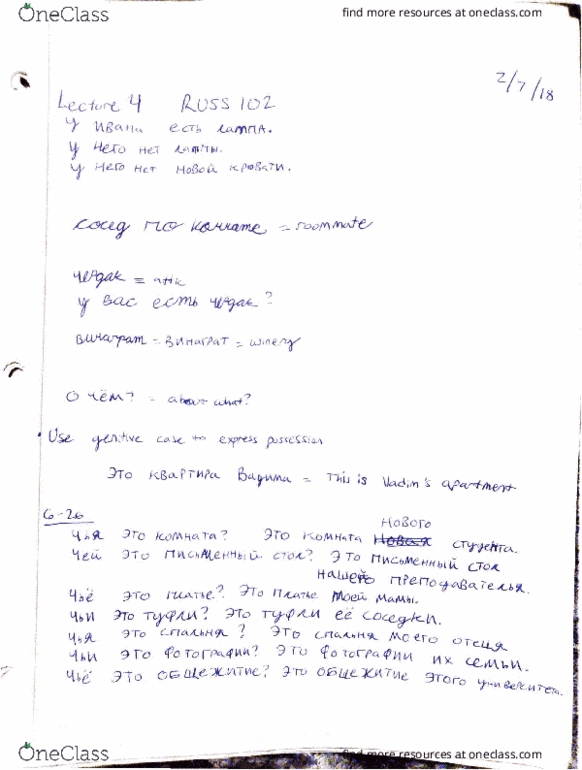 OneClass find more resources at oneclass.com
2/7/18
Lecture 4 RUSS 102
у Ивана есть лампа.
у него нет лампы.
у него нет новой кровати.
сосед по комнате = roommate
чердак = attic
у вас есть чердак?
винаграт = винаграт = winery
О чём? = about what?
• Use genitive case to express possession
Это квартира Вадима = This is Vadim's apartment
6-26
нового
Чья это комната? Это комната новая студента.
Чей это письменный стол? Это письменный стол
нашего преподавателья.
Чьё это платье? Это платье моей мамы.
Чьи это туфли? Это туфли её соседки.
Чья это спальня? Это спальня моего отеця
Чьи это фотографии? Это фотографии их семьи.
Чьё это общежитие? Это общежитие этого университета.
OneClass find more resources at oneclass.com